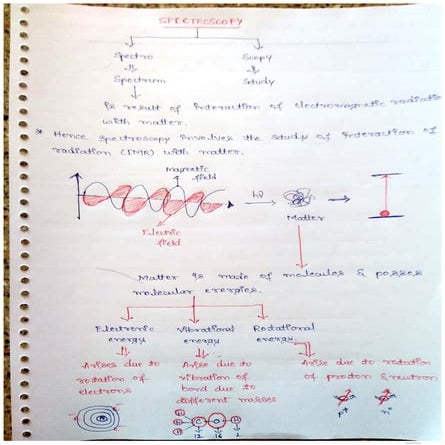 SPECTROSCOPY
Spectro Scopy
Spectrum Study
Is result of Interaction of electromagnetic radiation
with matter.
* Hence Spectroscopy Involves the Study of Interaction of
radiation (EMR) with matter.
Magnetic
field
hν
Matter
Electric
field
Matter Is made of molecules & posses
molecular energies.
Electronic Vibrational Rotational
energy energy energy
Arises due to Arise due to Arise due to rotation
rotation of vibration of of proton & neutron
electrons bond due to
different masses
H
H C O H
H
12 16 1
P+ n°